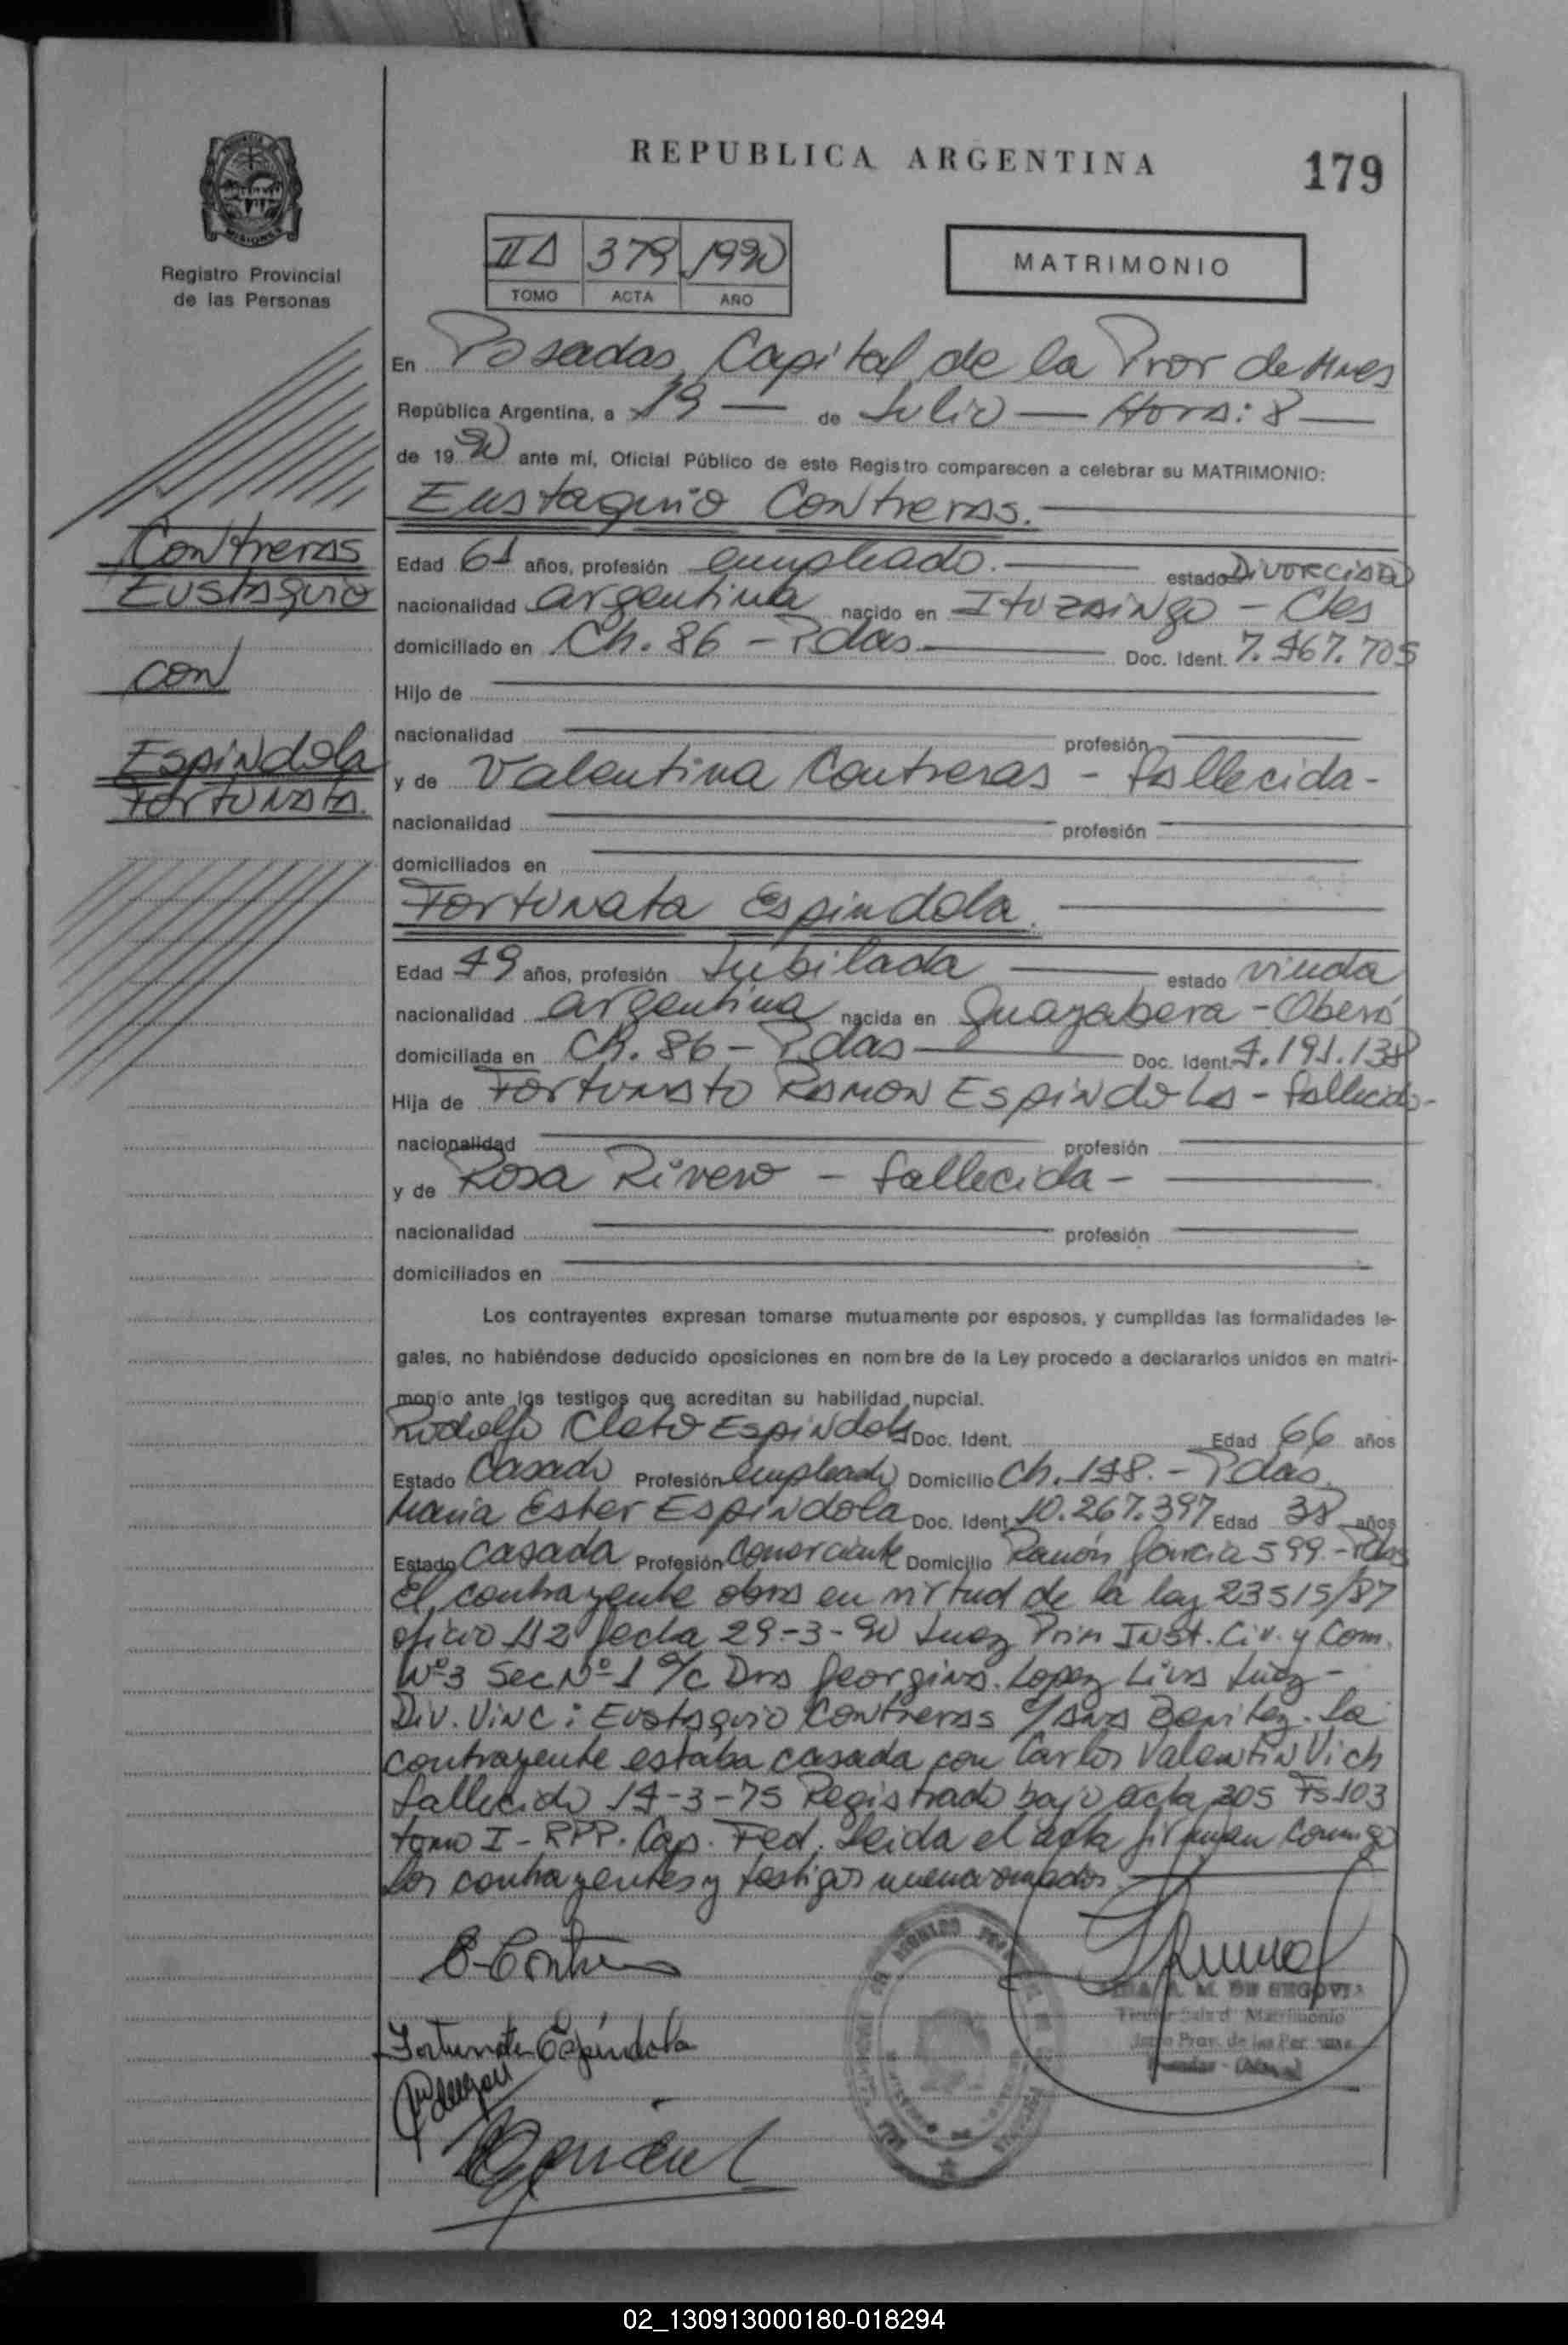 REPUBLICA ARGENTINA
179
MISIONES
Registro Provincial
de las Personas
IIA 379 1990
TOMO ACTA AÑO
MATRIMONIO
En Posadas, Capital de la Prov de Mnes
República Argentina, a 19 — de Julio — Hora: 8 —
de 1990 ante mí, Oficial Público de este Registro comparecen a celebrar su MATRIMONIO:
Eustaquio Contreras.
Contreras
Eustaquio
con
Espindola
Fortunata.
Edad 61 años, profesión empleado. — estado Divorciado
nacionalidad argentina nacido en Ituzaingo - Ctes
domiciliado en Ch. 86 - Pdas — Doc. Ident. 7.467.705
Hijo de
nacionalidad profesión
y de Valentina Contreras - fallecida -
nacionalidad profesión
domiciliados en
Fortunata Espindola.
Edad 49 años, profesión Jubilada — estado viuda
nacionalidad argentina nacida en Guayabera - Oberá
domiciliada en Ch. 86 - Pdas — Doc. Ident. 4.191.138
Hija de Fortunato Ramon Espindola - fallecido -
nacionalidad profesión
y de Rosa Rivero - fallecida -
nacionalidad profesión
domiciliados en
Los contrayentes expresan tomarse mutuamente por esposos, y cumplidas las formalidades le-
gales, no habiéndose deducido oposiciones en nombre de la Ley procedo a declararlos unidos en matri-
monio ante los testigos que acreditan su habilidad nupcial.
Rodolfo Cleto Espindola Doc. Ident. Edad 66 años
Estado Casado Profesión empleado Domicilio Ch. 148. - Pdas.
Maria Ester Espindola Doc. Ident. 10.267.397 Edad 38 años
Estado Casada Profesión Comerciante Domicilio Ramón Garcia 599 - Pdas
El contrayente obra en virtud de la ley 23515/87
oficio 112 fecha 29-3-90 Juez Prim Inst. Civ. y Com.
Nº 3 Sec Nº 1 a/c Dra Georgina Lopez Liva Juez -
Div. Vinc: Eustaquio Contreras c/ Ana Benitez. La
contrayente estaba casada con Carlos Valentin Vich
fallecido 14-3-75 Registrado bajo acta 205 Fs 103
tomo I - RPP. Cap. Fed. Leida el acta firman conmigo
los contrayentes y testigos mencionados
E Contreras
Fortunata Espindola
A. M. DE SEGOVIA
Matrimonio
Prov. de las Personas
02_130913000180-018294